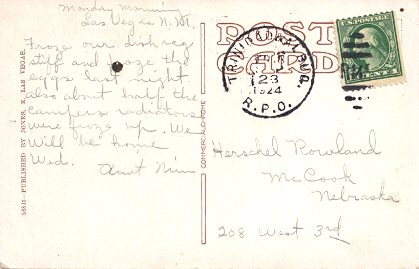 Monday Morning
Las Vegas N.M.
Froze our dish rag
stiff and froze the
eggs last night
also about half the
campers radiators
were froze up. We
will be home
Wed.
Aunt
POST
CARD
TRINIDAD
23
1924
R.P.O.
U.S. POSTAGE
Herschel Rowland
McCook
Nebraska
208 West 3rd
PUBLISHED BY JONES, E. LAS VEGAS.
COMMERCIALCHROME